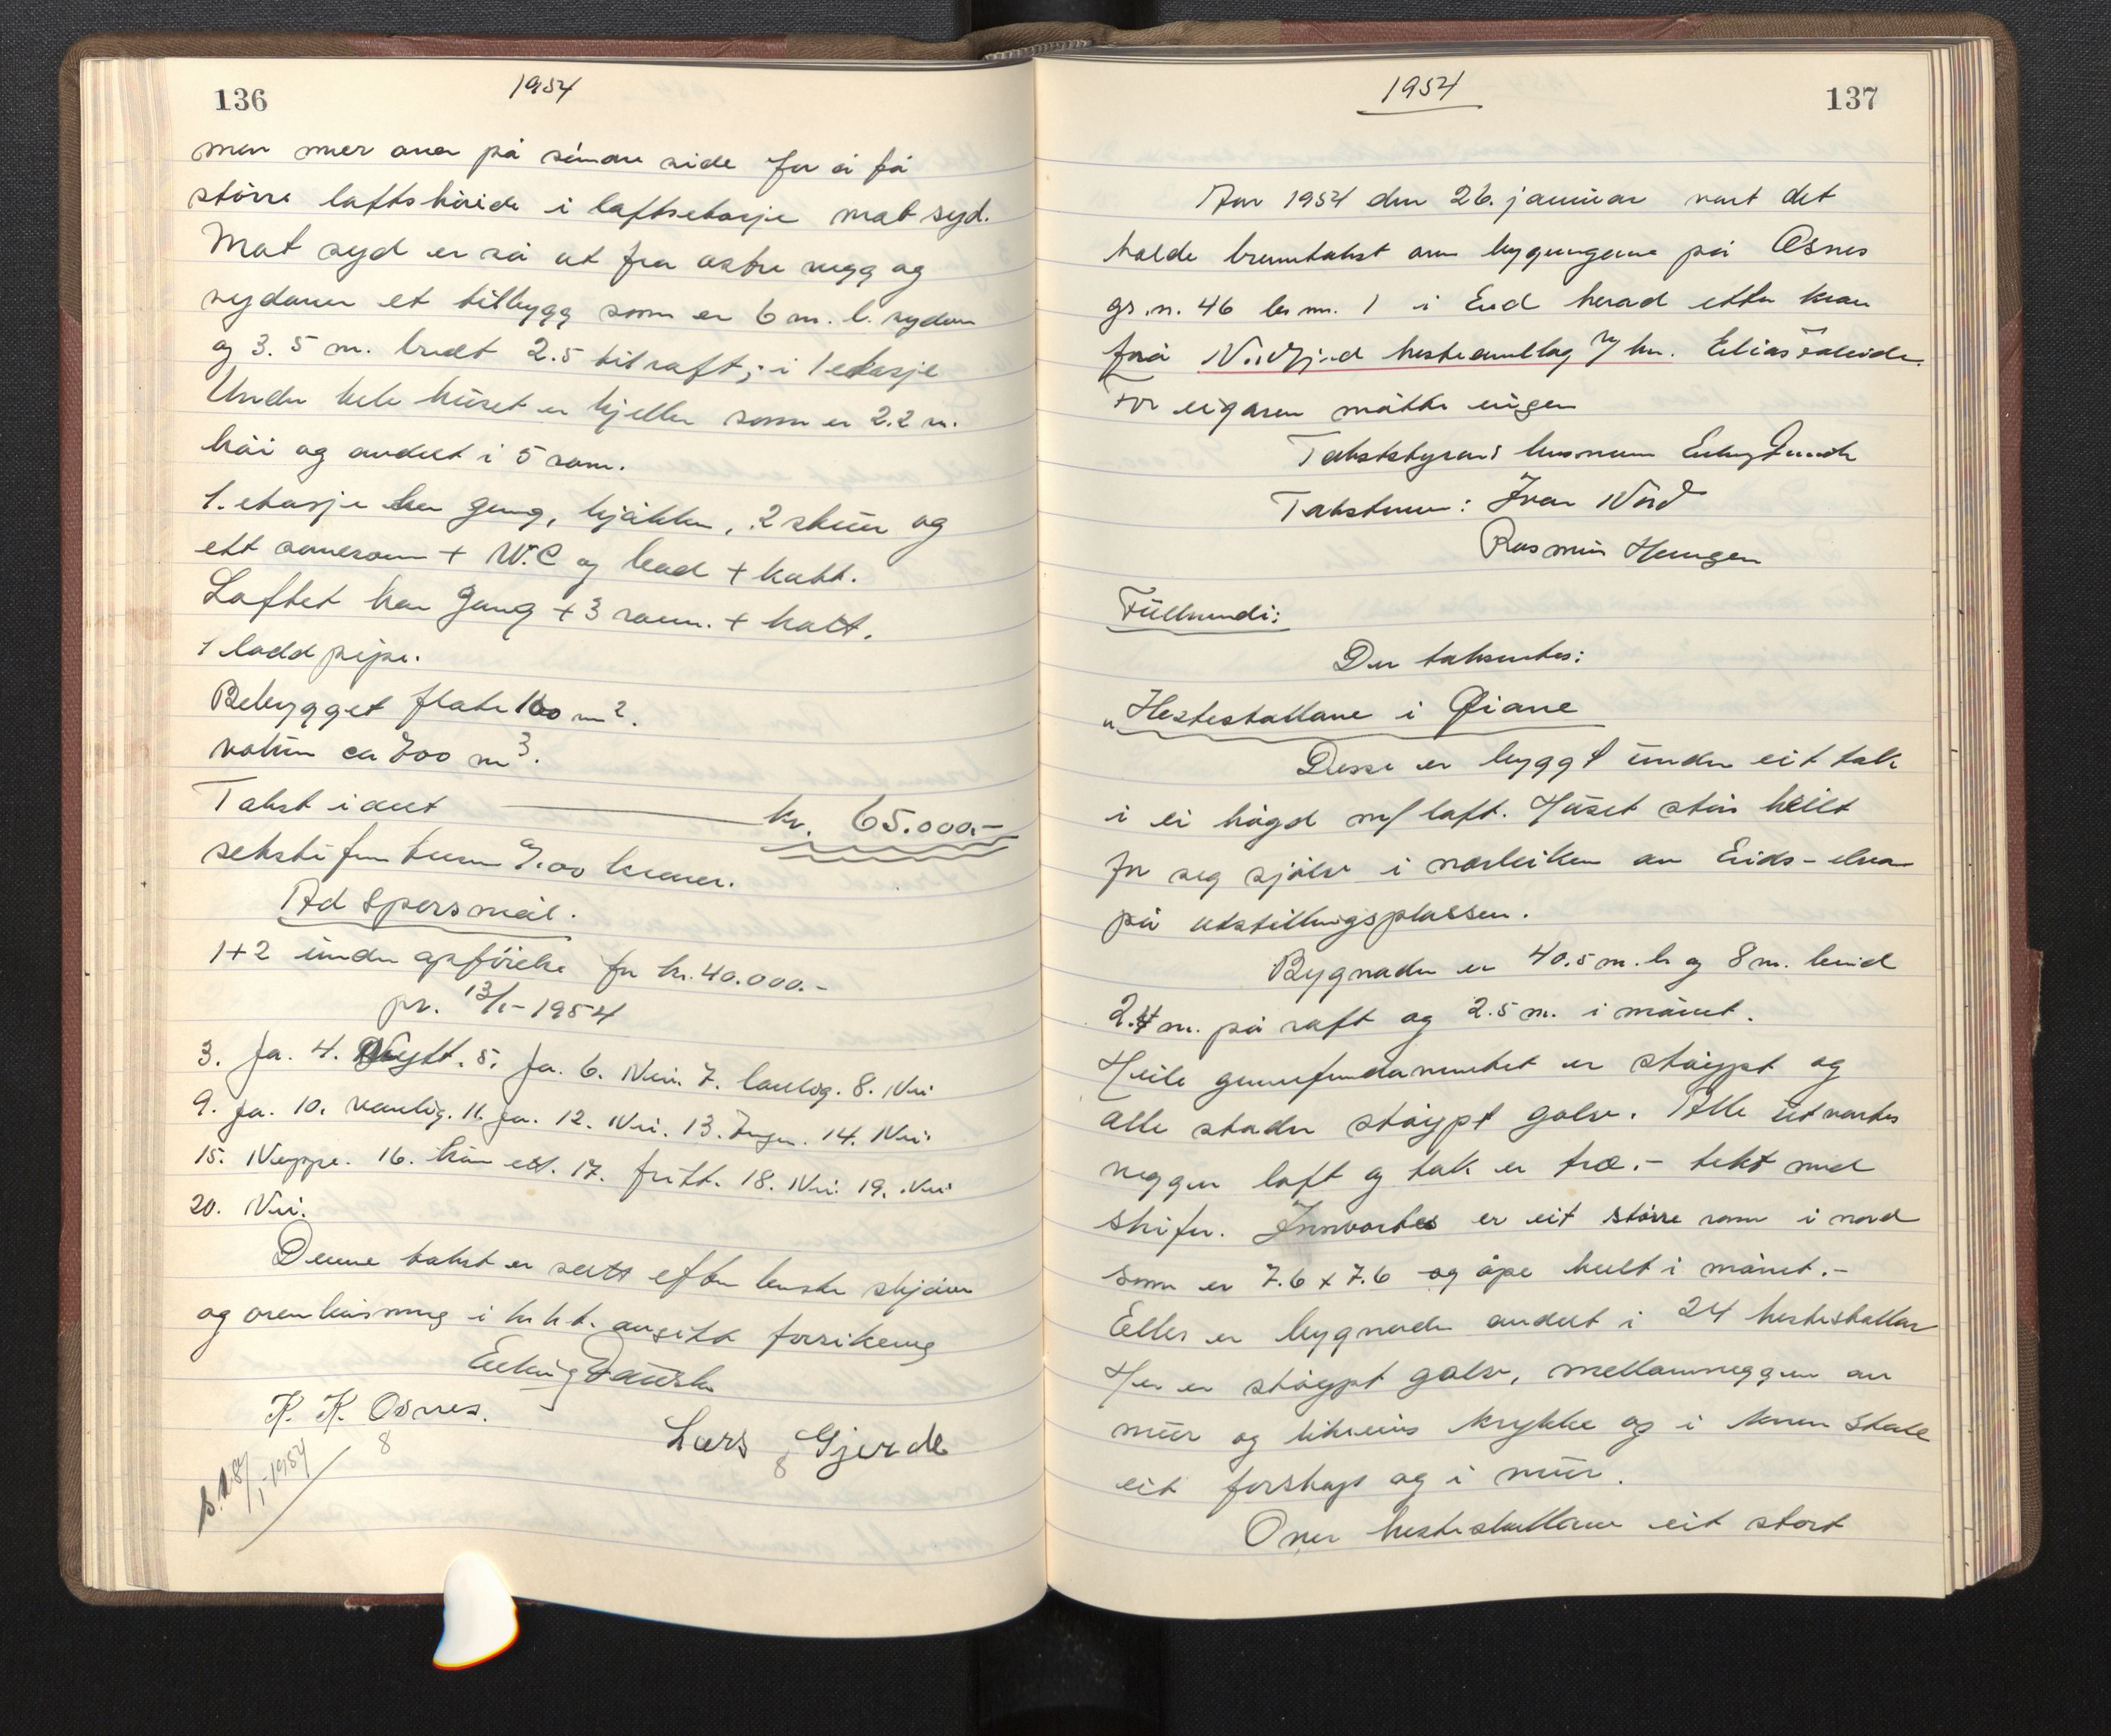 136
1954
men mer over på søndre side for å få
större loftshöide i loftsetasje mot syd.
Mot syd er så at fra østre vegg og
sydover et tilbygg som er 6 m. l. sydover
og 3.5 m. bredt 2.5 til raft; i 1 etasje
Under hele huset er kjeller som er 2.2 m.
höi og avdelt i 5 rom.
1. etasje har gang, kjøkken, 2 stuer og
ett soverom + W.C og bad + kott.
Loftet har Gang + 3 rom. + kott.
1 lodd pipe.
Bebygget flate 100 m².
volum ca 700 m³.
Takst i alt kr. 65.000.-
sekstifem tusen 0/00 kroner.
Ad Spørsmål.
1+2 under opförelse for kr. 40.000.-
pr. 13/1-1954
3. Ja. 4. Nytt. 5. Ja. 6. Nei. 7. lovlig. 8. Nei
9. Ja. 10. vanlig. 11. Ja. 12. Nei. 13. Ingen. 14. Nei.
15. Neppe. 16. kun ett. 17. fritt. 18. Nei 19. Nei
20. Nei.
Denne takst er sett efter beste skjönn
og overbevisning i h.h.t. avgitt forsikring
K. K. Osnes.
8
Lars Gjerde
8
1954
137
1954
Aar 1954 den 26. januar vart det
halde branntakst over bygningene på Osnes
gr. n. 46 br nr. 1 i Eid herad etter krav
frå Nordfjord hesteavllag v/ hr. Elias
For eigaren møtte ingen
Takststyrar: lensmann
Takstmenn: Ivar Nord
Rasmus Haugen
Fullmendi:
Der taksertes:
"Hestestallane i Øiane
Desse er byggt under eit tak
i ei högd m/ loft. Huset står heilt
for seg sjölv i nærleiken av Eids-elva
på utstillingsplassen.
Bygnaden er 40.5 m. l. og 8 m. breid
2.4 m. på raft og 2.5 m. i mönet.
Heile grunnfundamentet er stöypt og
alle stader stöypt golv. Alle utvortes
vegger loft og tak er træ.- tekt med
skifer. Innvortes er eit större rom i nord
som er 7.6 x 7.6 og åpe heilt i mönet.-
Elles er bygnaden avdelt i 24 hestestallar
Her er stöypt golv, mellomveggen av
mur og likeeins krykkje og i kvar stall
eit forskap og i mur.
Over hestestallane eit stort